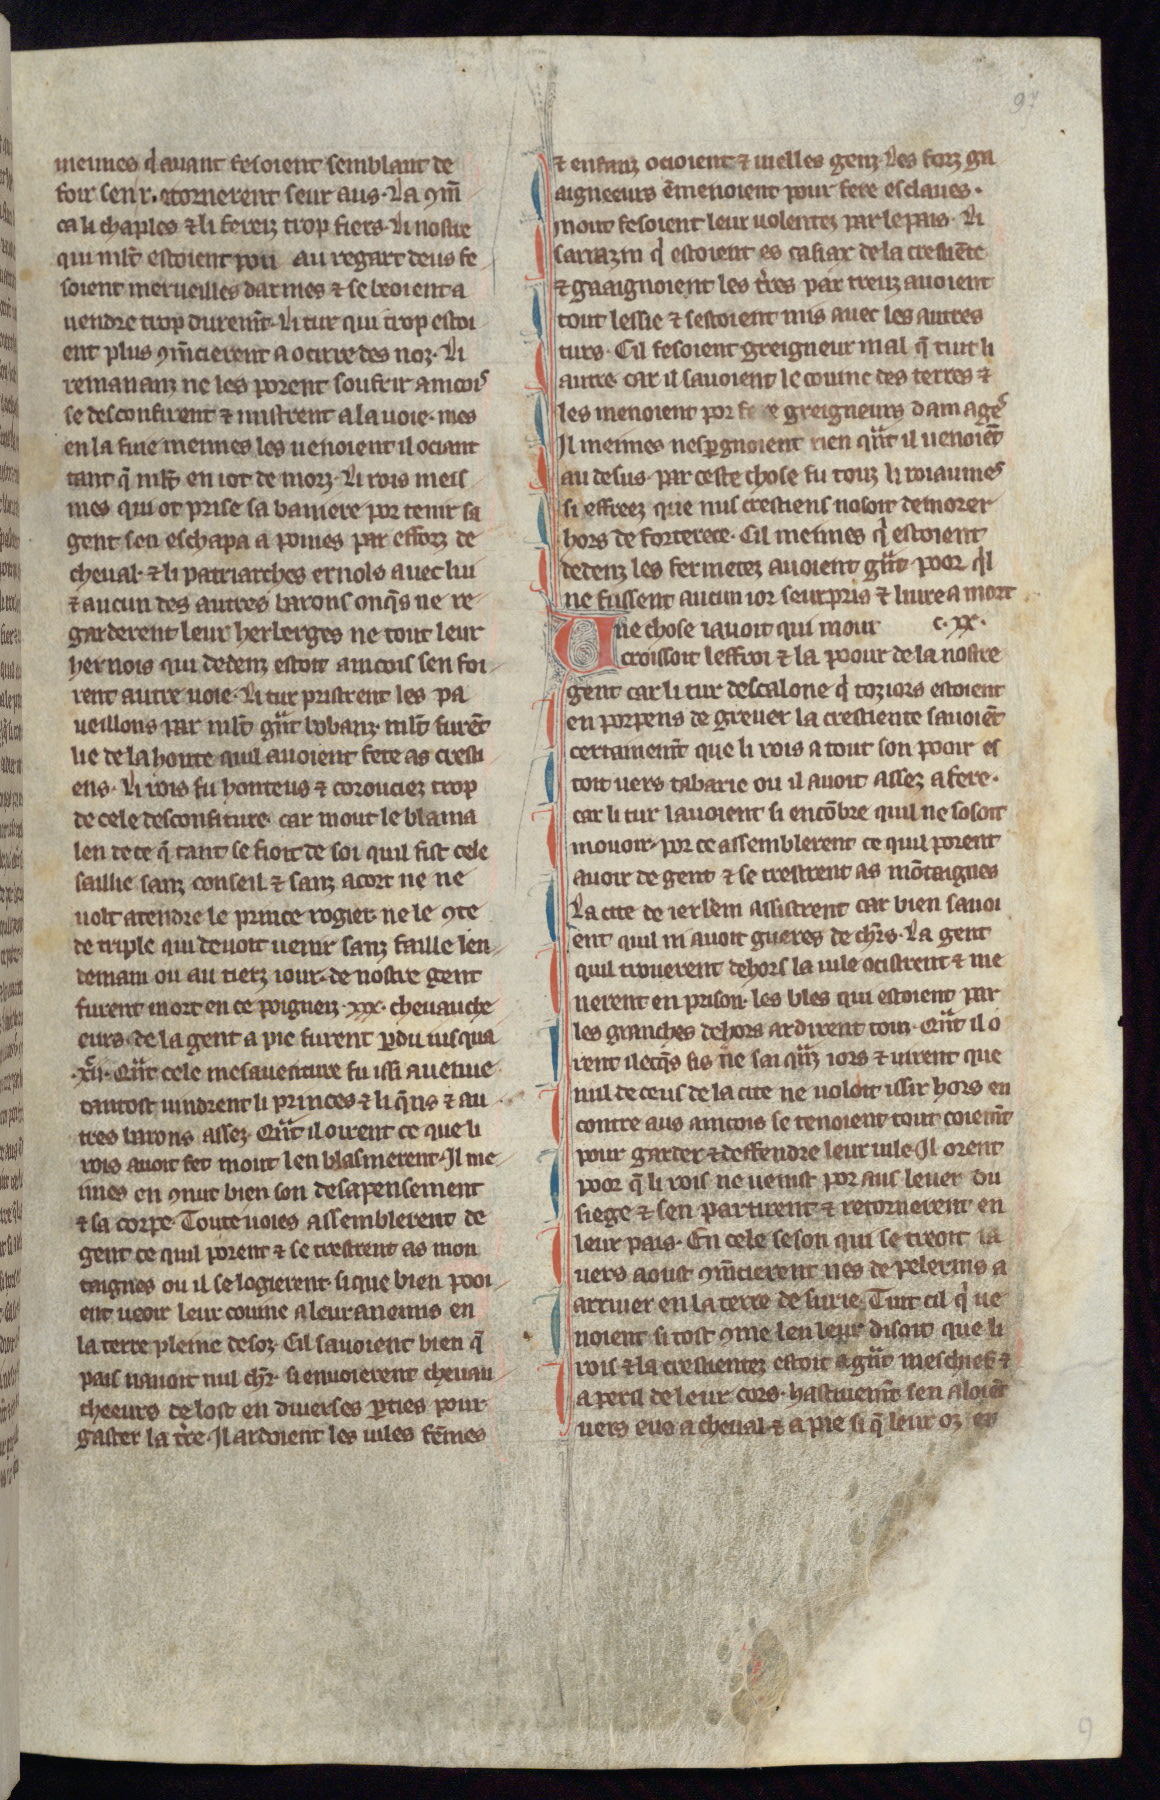 97
meimes q̇ auant fesoient semblant de
foir senr. ⁊tornerent seur aus. La 9m̄
ca li chaples ⁊ li fereiz trop fiers. Li nostre
qui ml̄t estoient pou au regart deus fe
soient merueilles darmes ⁊ se beoient a
uendre trop durem̄t. Li tur qui trop estoi
ent plus 9m̄cierent a ocirre des noz. Li
remananz ne les porent soufrir aincois
se desconfirent ⁊ mistrent a la uoie. mes
en la fuie meimes les uenoient il ociant
tant q̄ ml̄t en iot de morz. Li rois meis
mes qui ot prise sa baniere por tenir sa
gent sen eschapa a poines par efforz de
cheual. ⁊ li patriarches ernols auec lui
⁊ aucun des autres barons onq̄s ne re
garderent leur herberges ne tout leur
hernois qui dedenz estoit aincois sen foi
rent autre uoie. Li tur pristrent les pa
ueillons par ml̄t gn̄t bobanz. ml̄t furēt
lie de la honte quil auoient fete as cresti
ens. Li rois fu honteus ⁊ corouciez trop
de cele desconfiture. car mout le blama
len de ce q̄ tant se fioit de soi quil fist cele
saillie sanz conseil ⁊ sanz acort ne ne
uolt atendre le prince rogier. ne le 9te
de triple qui deuoit uenir sanz faille len
demain ou au tierz iour. de nostre gent
furent mort en ce poigneiz .xxx. cheuauche
eurs. de la gent a pie furent perdu iusqua
.xii. Qn̄t cele mesauenture fu issi auenue
tantost uindrent li princes ⁊ li q̄ns ⁊ au
tres barons assez. Qn̄t il oirent ce que li
rois auoit fet mout len blasmerent. Il me
imes en 9nut bien son desapensement
⁊ sa corpe. Toute uoies assemblerent de
gent ce quil porent ⁊ se trestrent as mon
taignes ou il se logierent. si que bien pooi
ent ueoir leur couine a leur anemis en
la terre pleine desoz. Cil sauoient bien q̄
pais nauoit nul chr̄. si enuoierent cheuau
cheeurs de lost en diuerses parties pour
gaster la tr̄e. Il ardoient les uiles fēmes
⁊ enfanz ocioient ⁊ uielles genz. Les forz ga
aigneeurs ēmenoient pour fere esclaues.
mout fesoient leur uolentez par le pais. Li
sarrazin q̇ estoient es casiax de la crestiēte
⁊ gaaignoient les tr̄es par treuz auoient
tout lessie ⁊ sestoient mis auec les autres
turs. Cil fesoient greigneur mal q̄ tuit li
autre. car il sauoient le couine des terres ⁊
les menoient por fere greigneurs damages
Il meimes nespargnoient rien qn̄t il uenoiēt
au desus. par ceste chose fu touz li roiaumes
si effreez que nus crestiens nosoit demorer
hors de forterece. Cil meimes q̇ estoient
dedenz les fermetez auoient gn̄t poor q̇l
ne fussent aucun ior seurpris ⁊ liure a mort
Une chose iauoit qui mout c. xx.
croissoit leffroi ⁊ la poour de la nostre
gent car li tur descalone q̇ toziors estoient
en porpens de greuer la crestiente sauoiēt
certainem̄t que li rois a tout son pooir es
toit uers tabarie ou il auoit assez a fere.
car li tur lauoient si encōbre quil ne sosoit
mouoir. por ce assemblerent ce quil porent
auoir de gent ⁊ se trestrent as mōtaignes
La cite de ierl̄em assistrent car bien sauoi
ent quil ni auoit gueres de chr̄s. La gent
quil trouerent dehors la uile ocistrent ⁊ me
nerent en prison. les bles qui estoient par
les granches dehors ardirent touz. Qn̄t il o
rent ilecq̄s sis ne sai qn̄z iors ⁊ uirent que
nul de ceus de la cite ne uoloit issir hors en
contre aus aincois se tenoient tout coiem̄t
pour garder ⁊ deffendre leur uile. Il orent
poor q̄ li rois ne uenist por aus leuer du
siege ⁊ sen partirent ⁊ retornerent en
leur pais. En cele seson qui se treoit ia
uers aoust 9m̄cierent nes de pelerins a
arriuer en la terre de surie. Tuit cil q̇ ue
noient si tost 9me len leur disoit que li
rois ⁊ la crestientez estoit a gn̄t meschief ⁊
a peril de leur cors. hastiuem̄t sen aloiēt
uers eus a cheual ⁊ a pie si q̄ leur oz en
9